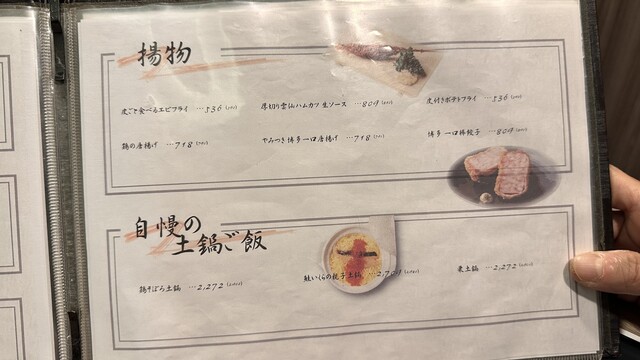 揚物
皮ごと食べるエビフライ …536
厚切り雲仙ハムカツ 生ソース …809
皮付きポテトフライ …536
鶏の唐揚げ …718
やみつき博多一口唐揚げ …718
博多一口棒餃子 …809
自慢の
土鍋ご飯
鶏そぼろ土鍋 …2,272
鮭いくらの親子土鍋 …2,709
栗土鍋 …2,272